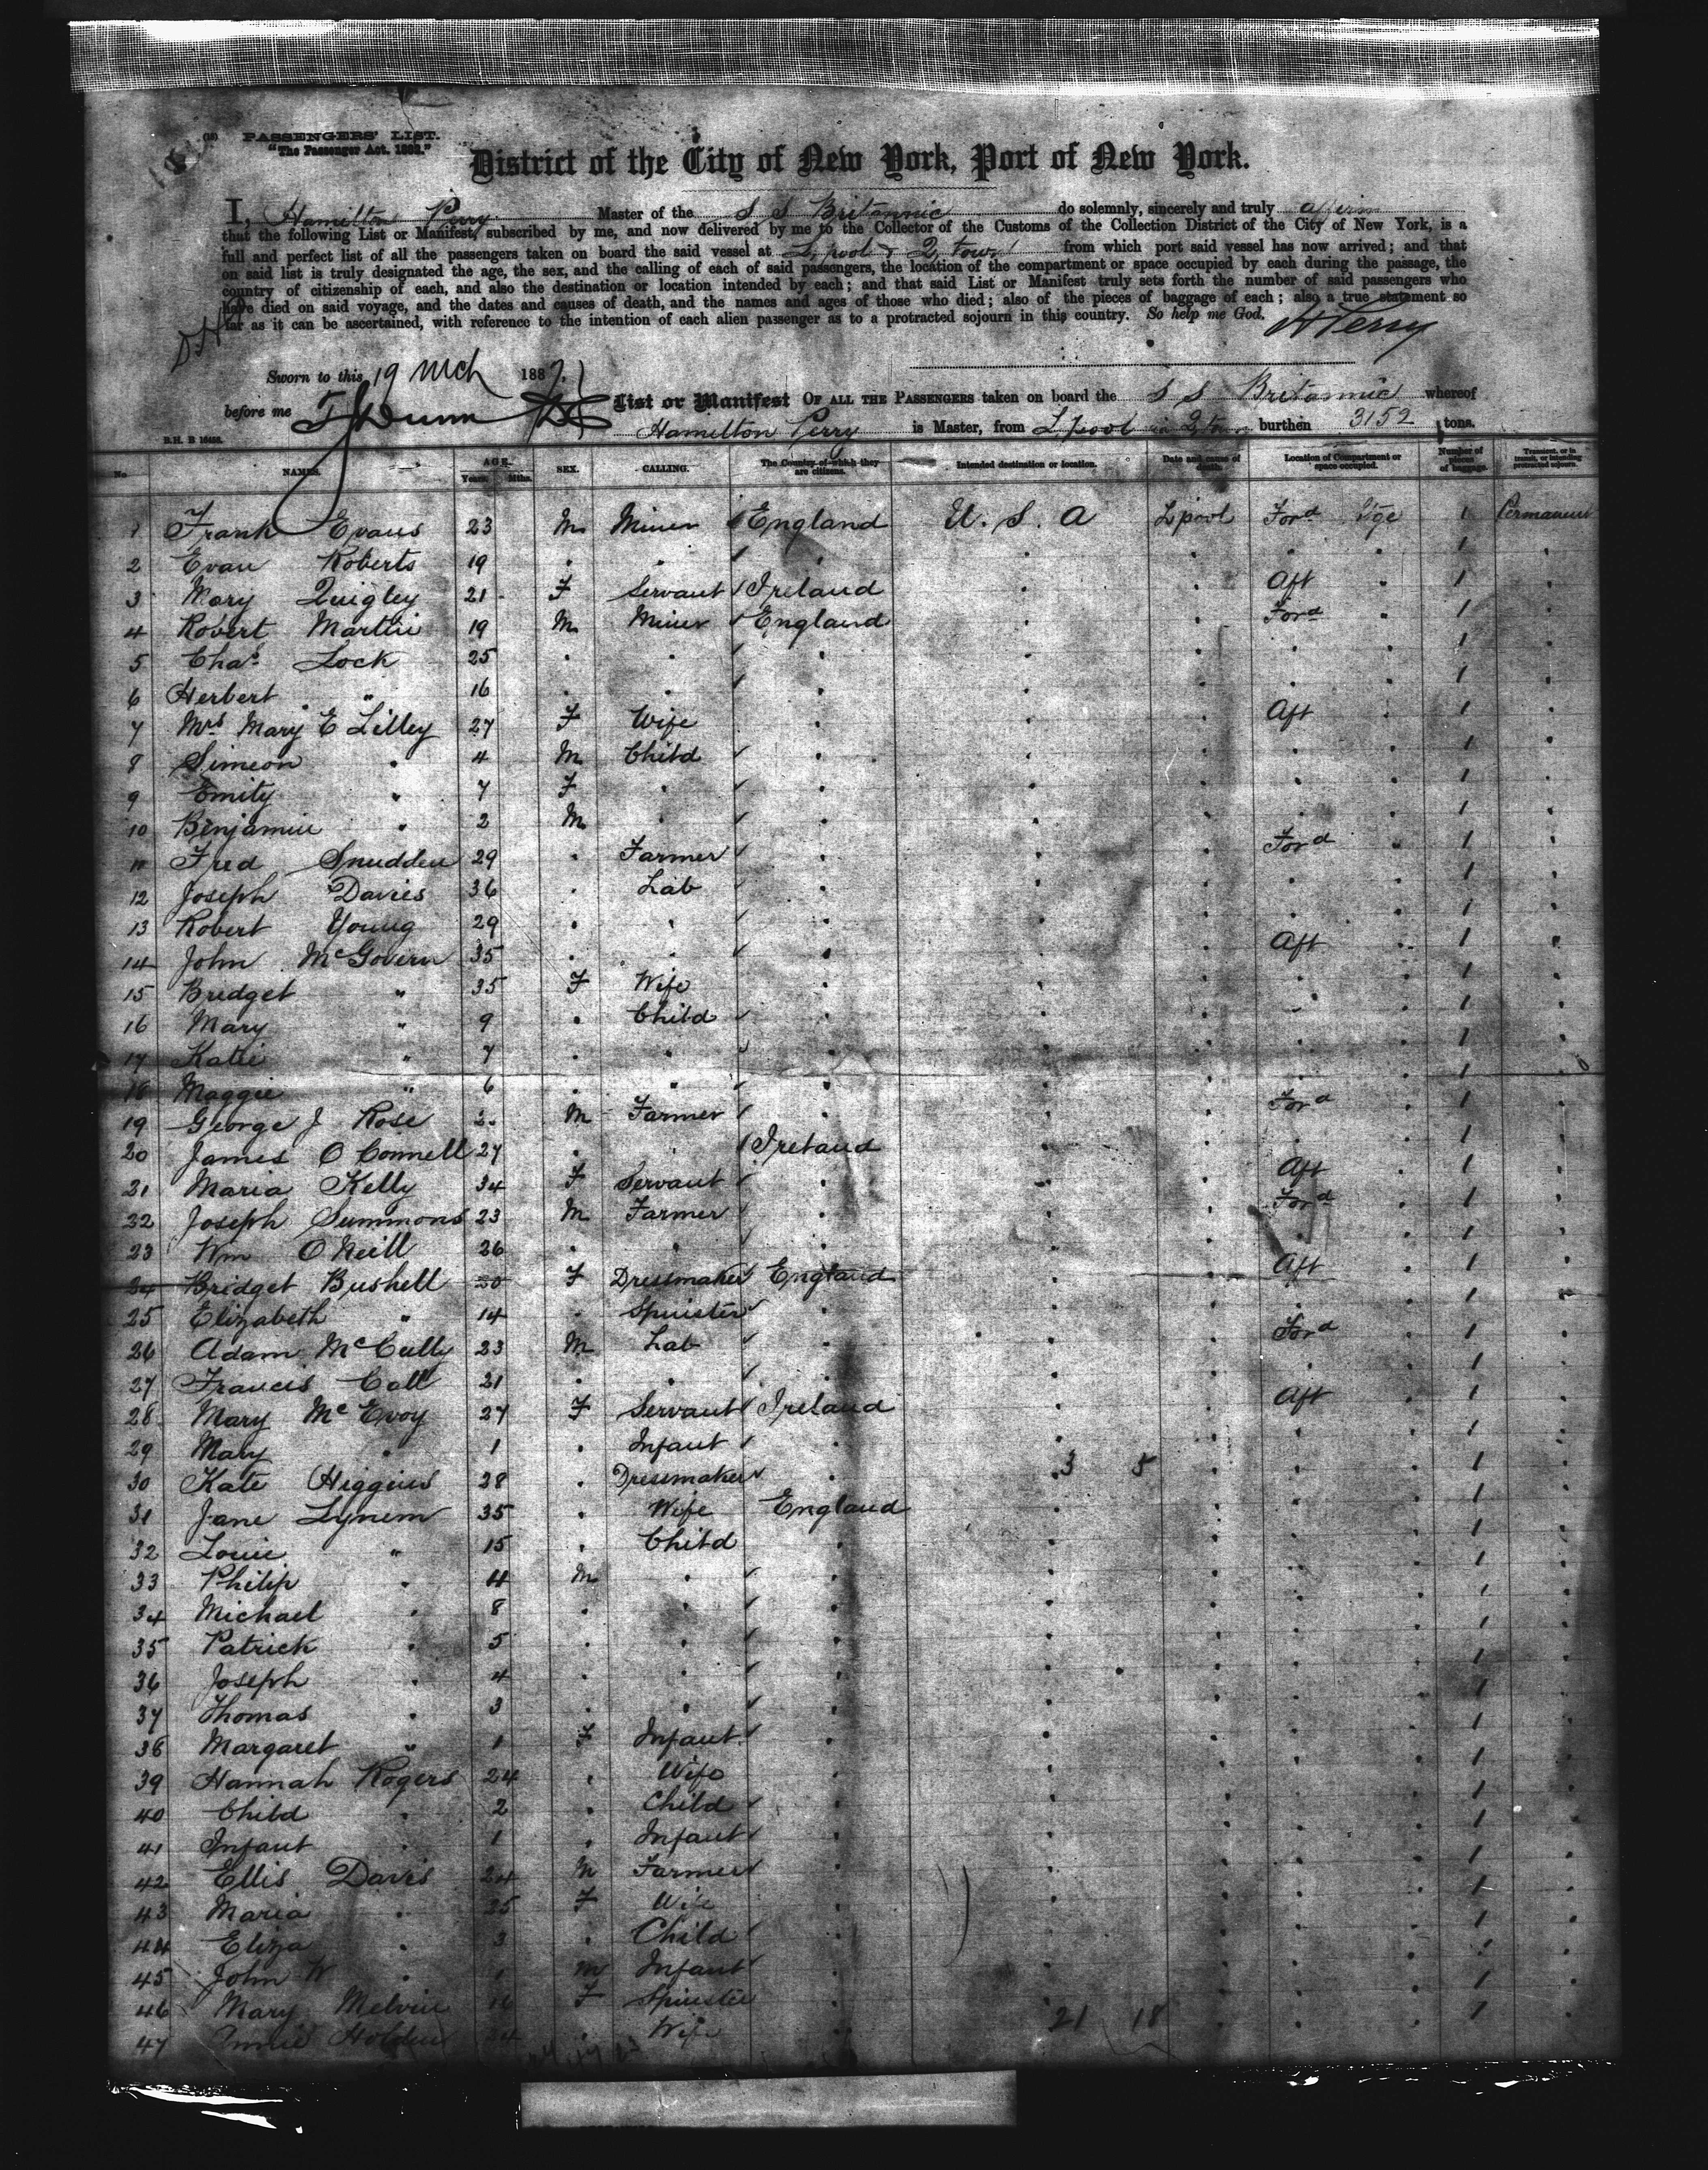 (18) PASSENGERS' LIST.
"The Passenger Act. 1882."
District of the City of New York, Port of New York.
I, Hamilton Perry Master of the S S Britannic do solemnly, sincerely and truly affirm
that the following List or Manifest, subscribed by me, and now delivered by me to the Collector of the Customs of the Collection District of the City of New York, is a
full and perfect list of all the passengers taken on board the said vessel at L'pool & Q'town from which port said vessel has now arrived; and that
on said list is truly designated the age, the sex, and the calling of each of said passengers, the location of the compartment or space occupied by each during the passage, the
country of citizenship of each, and also the destination or location intended by each; and that said List or Manifest truly sets forth the number of said passengers who
have died on said voyage, and the dates and causes of death, and the names and ages of those who died; also of the pieces of baggage of each; also a true statement so
far as it can be ascertained, with reference to the intention of each alien passenger as to a protracted sojourn in this country. So help me God.
H Perry
Sworn to this 19 Mch 1887
before me T J Dunn
List or Manifest OF ALL THE PASSENGERS taken on board the S S Britannic whereof
Hamilton Perry is Master, from L'pool via Q'town burthen 3152 tons.
B.H. B 16456.
No. NAMES. AGE. Years. Mths. SEX. CALLING. The Country of which they are citizens. Intended destination or location. Date and cause of death. Location of Compartment or space occupied. Number of pieces of baggage. Transient, or in transit, or intending protracted sojourn.
1 Frank Evans 23 M Miner England U. S. A L'pool Ford Stge 1 Permanent
2 Evan Roberts 19 " " " " " " " 1 "
3 Mary Quigley 21 F Servant Ireland " " Aft " 1 "
4 Robert Martin 19 M Miner England " " Ford " 1 "
5 Chas Lock 25 " " " " " " " 1 "
6 Herbert " 16 " " " " " " " 1 "
7 Mrs Mary E Lilley 27 F Wife " " " Aft " 1 "
8 Simeon " 4 M Child " " " " " 1 "
9 Emily " 7 F " " " " " " 1 "
10 Benjamin " 2 M " " " " " " 1 "
11 Fred Snudden 29 " Farmer " " " Ford " 1 "
12 Joseph Davies 36 " Lab " " " " " 1 "
13 Robert Young 29 " " " " " " " 1 "
14 John McGovern 35 " " " " " Aft " 1 "
15 Bridget " 35 F Wife " " " " " 1 "
16 Mary " 9 " Child " " " " " 1 "
17 Katie " 7 " " " " " " " 1 "
18 Maggie " 6 " " " " " " " 1 "
19 George J Rose M Farmer " " " Ford " 1 "
20 James O Connell 27 " " Ireland " " " " 1 "
21 Maria Kelly 34 F Servant " " " Aft " 1 "
22 Joseph Summons 23 M Farmer " " " Ford " 1 "
23 Wm O Neill 26 " " " " " " " 1 "
24 Bridget Bushell 20 F Dressmaker England " " Aft " 1 "
25 Elizabeth " 14 " Spinster " " " " " 1 "
26 Adam McCully 23 M Lab " " " Ford " 1 "
27 Francis Call 21 " " " " " " " 1 "
28 Mary McEvoy 27 F Servant Ireland " " Aft " 1 "
29 Mary " 1 " Infant " " " " " 1 "
30 Kate Higgins 28 " Dressmaker " 3 5 " " " 1 "
31 Jane Lynem 35 " Wife England " " " " 1 "
32 Louie " 15 " Child " " " " " 1 "
33 Philip " 4 M " " " " " " 1 "
34 Michael " 8 " " " " " " " 1 "
35 Patrick " 5 " " " " " " " 1 "
36 Joseph " 4 " " " " " " " 1 "
37 Thomas " 3 " " " " " " " 1 "
38 Margaret " 1 F Infant " " " " " 1 "
39 Hannah Rogers 24 " Wife " " " " " 1 "
40 Child " 2 " Child " " " " " 1 "
41 Infant " 1 " Infant " " " " " 1 "
42 Ellis Davis 24 M Farmer " " " " " 1 "
43 Maria " 25 F Wife " " " " " 1 "
44 Eliza " 3 " Child " " " " " 1 "
45 John W " 1 M Infant " " " " " 1 "
46 Mary Melvin 16 F Spinster " 21 18 " " " 1 "
47 Annie Holden 24 " Wife " " " " " 1 "